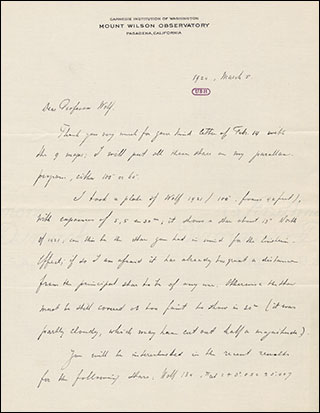 CARNEGIE INSTITUTION OF WASHINGTON
MOUNT WILSON OBSERVATORY
PASADENA, CALIFORNIA
March
Dear Professor Wolf.
Thank you very much for your kind letter of Feb. 14 with
the 9 maps; I will put all these stars on my parallax
program, either 100" or 60".
I took a plate of Wolf
with exposures of it shows a star about 15" North
of can this be the star you had in mind for the Einstein
Effect; if so I am afraid it has already too great a distance
from the principal star to be of any use. Otherwise the star
must be still covered or too faint to show in 20m (it was
partly cloudy, which may have cut out half a magnitude).
You will be interested in the recent results
for the following stars, Wolf